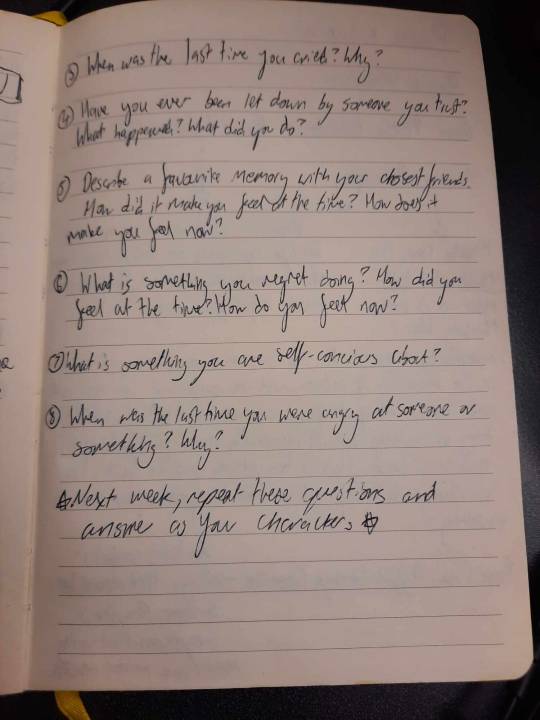 ③ When was the last time you cried? Why?
④ Have you ever been let down by someone you trust?
What happened? What did you do?
⑤ Describe a favourite memory with your closest friends.
How did it make you feel at the time? How does it
make you feel now?
⑥ What is something you regret doing? How did you
feel at the time? How do you feel now?
⑦ What is something you are self-concious about?
⑧ When was the last time you were angry at someone or
something? Why?
☆Next week, repeat these questions and
answer as your characters☆